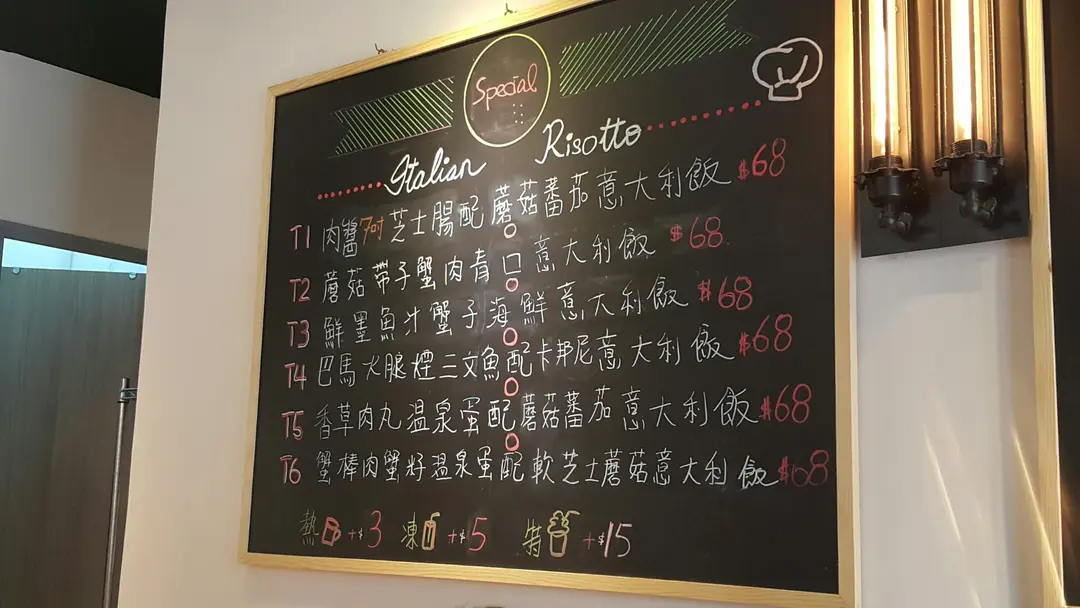 Special
Italian Risotto
T1 肉醬7吋芝士腸配蘑菇蕃茄意大利飯 $68
T2 蘑菇帶子蟹肉青口意大利飯 $68
T3 鮮墨魚汁蟹子海鮮意大利飯 $68
T4 巴馬火腿煙三文魚配卡邦尼意大利飯 $68
T5 香草肉丸温泉蛋配蘑菇蕃茄意大利飯 $68
T6 蟹棒肉蟹籽温泉蛋配軟芝士蘑菇意大利飯 $68
熱 +$3 凍 +$5 特 +$15